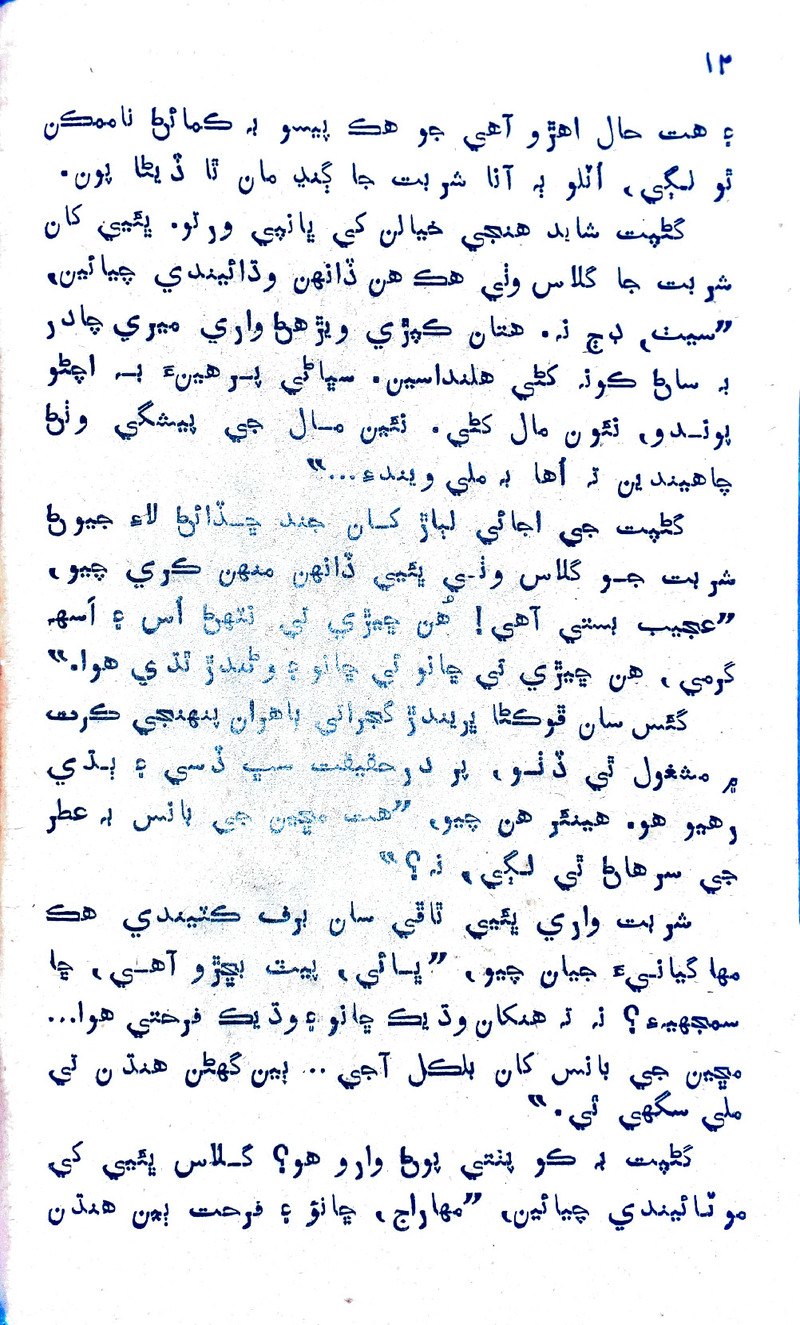 ۱۲
۽ هت حال اهڙو آهي جو هڪ پيسو بہ ڪمائڻ ناممڪن
ٿو لڳي، اُٽلو ٻہ آنا شربت جا ڳنڍ مان ٿا ڏيڻا پون.
گڻپت شايد هنجي خيالن کي ڀانپي ورتو. ڀئيي کان
شربت جا گلاس وٺي هڪ هن ڏانهن وڌائيندي چيائين،
”سيٺ، ڊڄ نہ. هتان ڪپڙي ويڙهڻ واري ميري چادر
بہ ساڻ ڪونہ کڻي هلنداسين. سڀاڻي پرهينءَ بہ اچڻو
پوندو، نئون مال کڻي. نئين مال جي پيشگي وٺڻ
چاهيندين تہ اُها بہ ملي ويندءِ...“
گڻپت جي اجائي لٻاڙ کان جند ڇڏائڻ لاءِ جيوڻ
شربت جو گلاس وٺي ڀئيي ڏانهن منهن ڪري چيو،
”عجيب بستي آهي! هُن ڇيڙي تي نٽهڻ اُس ۽ اَسهہ
گرمي، هن ڇيڙي تي ڇانو ئي ڇانو ۽ وڻندڙ ٿڌي هوا.“
گئس سان ڦوڪڻا ڀريندڙ گجراتي ٻاهران پنهنجي ڪرت
۾ مشغول ٿي ڏٺو، پر درحقيقت سڀ ڏسي ۽ ٻڌي
رهيو هو. هينئر هن چيو، ”هت مڇين جي بانس بہ عطر
جي سرهاڻ ٿي لڳي، نہ؟“
شربت واري ڀئيي ٿاڦي سان برف ڪٽيندي هڪ
مها گيانيءَ جيان چيو، ”ڀائي، پيٽ بڇڙو آهي، ڇا
سمجهيءِ؟ نہ تہ هنکان وڌيڪ ڇانو ۽ وڌيڪ فرحتي هوا...
مڇين جي بانس کان بلڪل آجي.. ٻين گهڻن هنڌن تي
ملي سگهي ٿي.“
گڻپت بہ ڪو پٺتي پوڻ وارو هو؟ گلاس ڀئيي کي
موٽائيندي چيائين، ”مهاراج، ڇانوَ ۽ فرحت ٻين هنڌن